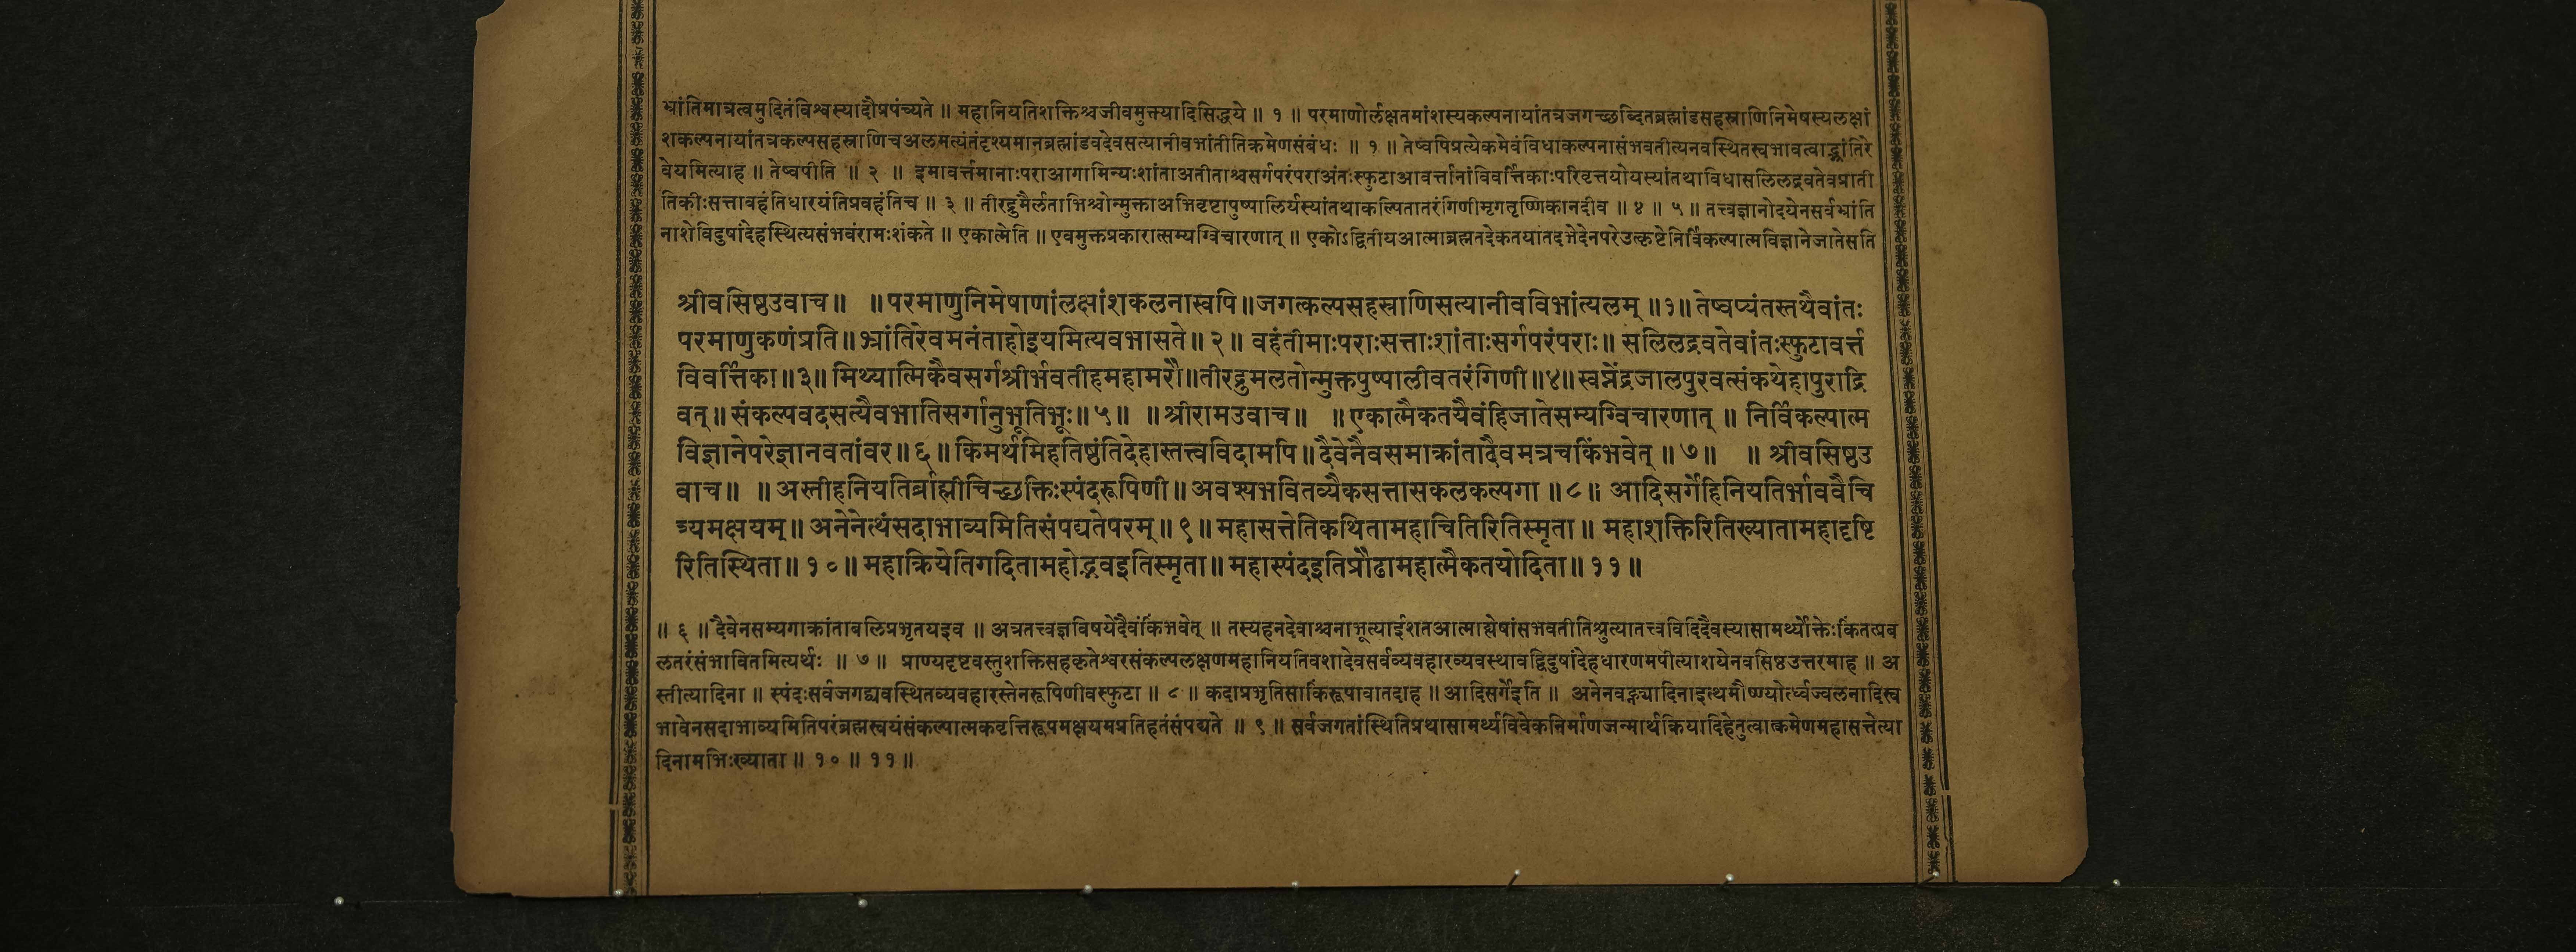 भ्रांतिमात्रत्वमुदितंविश्वस्यादौप्रपंच्यते ॥ महानियतिशक्तिश्चजीवमुक्त्यादिसिद्धये ॥ १ ॥ परमाणोर्लक्षतमांशस्यकल्पनायांतत्रजगच्छब्दितब्रह्मांडसहस्राणिनिमेषस्यलक्षां
शकल्पनायांतत्रकल्पसहस्राणिचअलमत्यंतंदृश्यमानब्रह्मांडवदेवसत्यानीवभांतीतिक्रमेणसंबंधः ॥ १ ॥ तेष्वपिप्रत्येकमेवंविधाकल्पनासंभवतीत्यनवस्थितस्वभावत्वाद्भ्रांतिरे
वेयमित्याह ॥ तेष्वपीति ॥ २ ॥ इमावर्त्तमानाःपराआगामिन्यःशांताअतीताश्चसर्गपरंपराअंतःस्फुटाआवर्त्तानांविवर्त्तिकाःपरिवृत्तयोयस्यांतथाविधासलिलद्रवतेवप्राती
तिकीःसत्तावहंतिधारयंतिप्रवहंतिच ॥ ३ ॥ तीरद्रुमैर्लताभिश्चोन्मुक्ताअभिवृष्टापुष्पालिर्यस्यांतथाकल्पितातरंगिणीमृगतृष्णिकानदीव ॥ ४ ॥ ५ ॥ तत्त्वज्ञानोदयेनसर्वभ्रांति
नाशेविदुषांदेहस्थित्यसंभवंरामःशंकते ॥ एकात्मेति ॥ एवमुक्तप्रकारात्सम्यग्विचारणात् ॥ एकोऽद्वितीयआत्माब्रह्मतदेकतयातदभेदेनपरेउत्कृष्टेनिर्विकल्पात्मविज्ञानेजातेसति
श्रीवसिष्ठउवाच ॥ ॥ परमाणुनिमेषाणांलक्षांशकलनास्वपि ॥ जगत्कल्पसहस्राणिसत्यानीवविभांत्यलम् ॥ १ ॥ तेष्वप्यंतस्तथैवांतः
परमाणुकणंप्रति ॥ भ्रांतिरेवमनंताहोइयमित्यवभासते ॥ २ ॥ वहंतीमाःपराःसत्ताःशांताःसर्गपरंपराः ॥ सलिलद्रवतेवांतःस्फुटावर्त्त
विवर्त्तिका ॥ ३ ॥ मिथ्यात्मिकैवसर्गश्रीर्भवतीहमहामरौ ॥ तीरद्रुमलतोन्मुक्तपुष्पालीवतरंगिणी ॥ ४ ॥ स्वप्नेंद्रजालपुरवत्संकथेहापुराद्रि
वत् ॥ संकल्पवदसत्यैवभातिसर्गानुभूतिभूः ॥ ५ ॥ ॥ श्रीरामउवाच ॥ ॥ एकात्मैकतयैवंहिजातेसम्यग्विचारणात् ॥ निर्विकल्पात्म
विज्ञानेपरेज्ञानवतांवर ॥ ६ ॥ किमर्थमिहतिष्ठंतिदेहास्तत्त्वविदामपि ॥ दैवेनैवसमाक्रांतादैवमत्रचकिंभवेत् ॥ ७ ॥ ॥ श्रीवसिष्ठउ
वाच ॥ ॥ अस्तीहनियतिर्ब्राह्मीचिच्छक्तिःस्पंदरूपिणी ॥ अवश्यभवितव्यैकसत्तासकलकल्पगा ॥ ८ ॥ आदिसर्गेहिनियतिर्भाववैचि
त्र्यमक्षयम् ॥ अनेनेत्थंसदाभाव्यमितिसंपद्यतेपरम् ॥ ९ ॥ महासत्तेतिकथितामहाचितिरितिस्मृता ॥ महाशक्तिरितिख्यातामहादृष्टि
रितिस्थिता ॥ १० ॥ महाक्रियेतिगदितामहोद्भवइतिस्मृता ॥ महास्पंदइतिप्रौढामहात्मैकतयोदिता ॥ ११ ॥
॥ ६ ॥ दैवेनसम्यगाक्रांताबलिप्रभृतयइव ॥ अत्रतत्त्वज्ञविषयेदैवंकिंभवेत् ॥ तस्यहनदेवाश्चनाभूत्याईशतआत्माह्येषांसभवतीतिश्रुत्यातत्त्वविदिदैवस्यासामर्थ्योक्तेःकिंतत्प्रब
लतरंसंभावितमित्यर्थः ॥ ७ ॥ प्राण्यदृष्टवस्तुशक्तिसहकृतेश्वरसंकल्पलक्षणमहानियतिवशादेवसर्वव्यवहारव्यवस्थावद्विदुषांदेहधारणमपीत्याशयेनवसिष्ठउत्तरमाह ॥ अ
स्तीत्यादिना ॥ स्पंदःसर्वजगद्व्यवस्थितव्यवहारस्तेनरूपिणीवस्फुटा ॥ ८ ॥ कदाप्रभृतिसाकिंरूपावातदाह ॥ आदिसर्गेइति ॥ अनेनवह्न्यादिनाइत्थमौष्ण्योर्ध्वज्वलनादिस्व
भावेनसदाभाव्यमितिपरंब्रह्मस्वयंसंकल्पात्मकवृत्तिरूपमक्षयमप्रतिहतंसंपद्यते ॥ ९ ॥ सर्वजगतांस्थितिप्रथासामर्थ्यविवेकनिर्माणजन्मार्थक्रियादिहेतुत्वात्क्रमेणमहासत्तेत्या
दिनामभिःख्याता ॥ १० ॥ ११ ॥